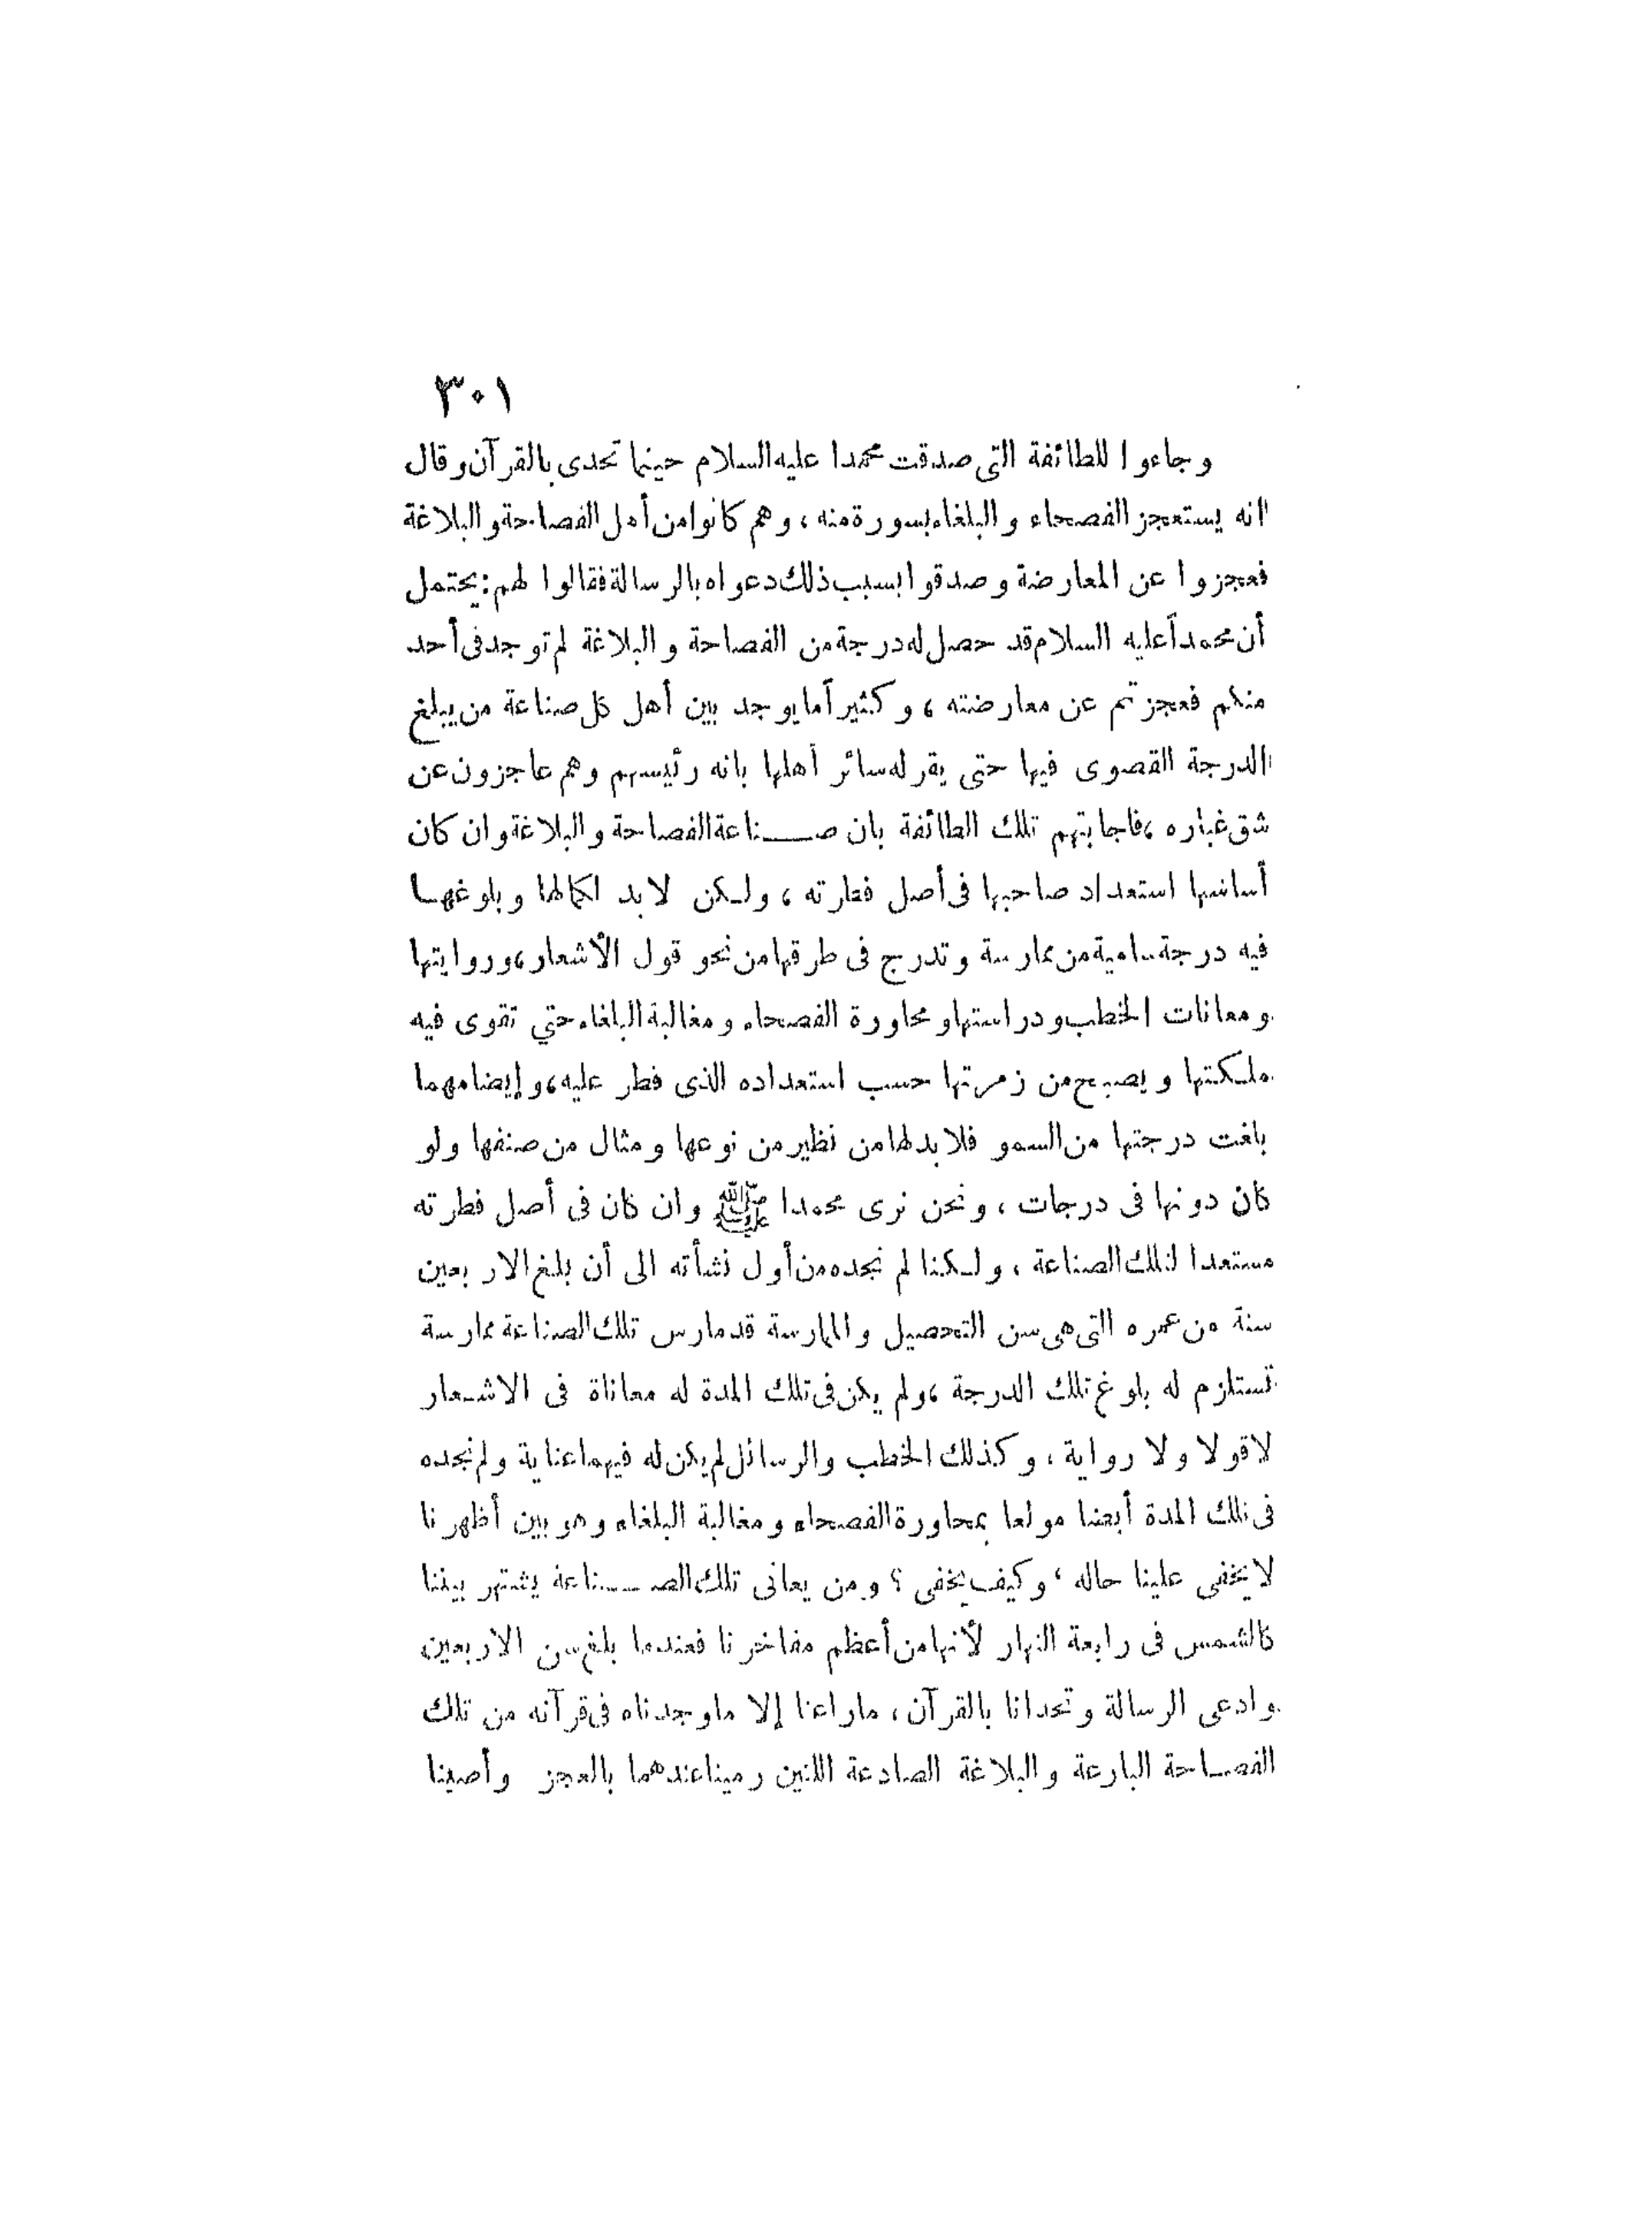 ٣٠١
وجاءوا للطائفة التى صدقت محمدا عليه السلام حينما تحدى بالقرآن وقال
انه يستعجز الفصحاء والبلغاء بسورة منه ، وهم كانوا من أهل الفصاحة والبلاغة
فعجزوا عن المعارضة وصدقوا بسبب ذلك دعواه بالرسالة فقالوا لهم : يحتمل
أن محمداً عليه السلام قد حصل له درجة من الفصاحة والبلاغة لم توجد فى أحد
منكم فعجزتم عن معارضته ، وكثيراً ما يوجد بين أهل كل صناعة من يبلغ
الدرجة القصوى فيها حتى يقر له سائر أهلها بانه رئيسهم وهم عاجزون عن
شق غباره ، فاجابتهم تلك الطائفة بان صـــناعة الفصاحة والبلاغة وان كان
أساسها استعداد صاحبها فى أصل فطرته ، ولكن لا بد لكمالها وبلوغها
فيه درجة سامية من ممارسة وتدرج فى طرقها من نحو قول الأشعار ، وروايتها
ومعانات الخطب ودراستها ومحاورة الفصحاء ومغالبة البلغاء حتي تقوى فيه
ملكتها ويصبح من زمرتها حسب استعداده الذى فطر عليه ، وإيضا مهما
بلغت درجتها من السمو فلا بد لها من نظير من نوعها ومثال من صنفها ولو
كان دونها فى درجات ، ونحن نرى محمدا ﷺ وان كان فى أصل فطرته
مستعدا لتلك الصناعة ، ولكنا لم نجده من أول نشأته الى أن بلغ الاربعين
سنة من عمره التى هى سن التحصيل والممارسة قد مارس تلك الصناعة ممارسة
تستلزم له بلوغ تلك الدرجة ، ولم يكن فى تلك المدة له معاناة فى الاشعار
لا قولا ولا رواية ، وكذلك الخطب والرسائل لم يكن له فيهما عناية ولم نجده
فى تلك المدة أيضا مولعا بمحاورة الفصحاء ومغالبة البلغاء وهو بين أظهرنا
لا يخفى علينا حاله ، وكيف يخفى ؟ ومن يعانى تلك الصـــناعة يشتهر بيننا
كالشمس فى رابعة النهار لأنها من أعظم مفاخرنا فعندما بلغ سن الاربعين
وادعى الرسالة وتحدانا بالقرآن ، ماراعنا إلا ما وجدناه فى قرآنه من تلك
الفصاحة البارعة والبلاغة الصادعة اللتين رمينا عندهما بالعجز وأصبنا